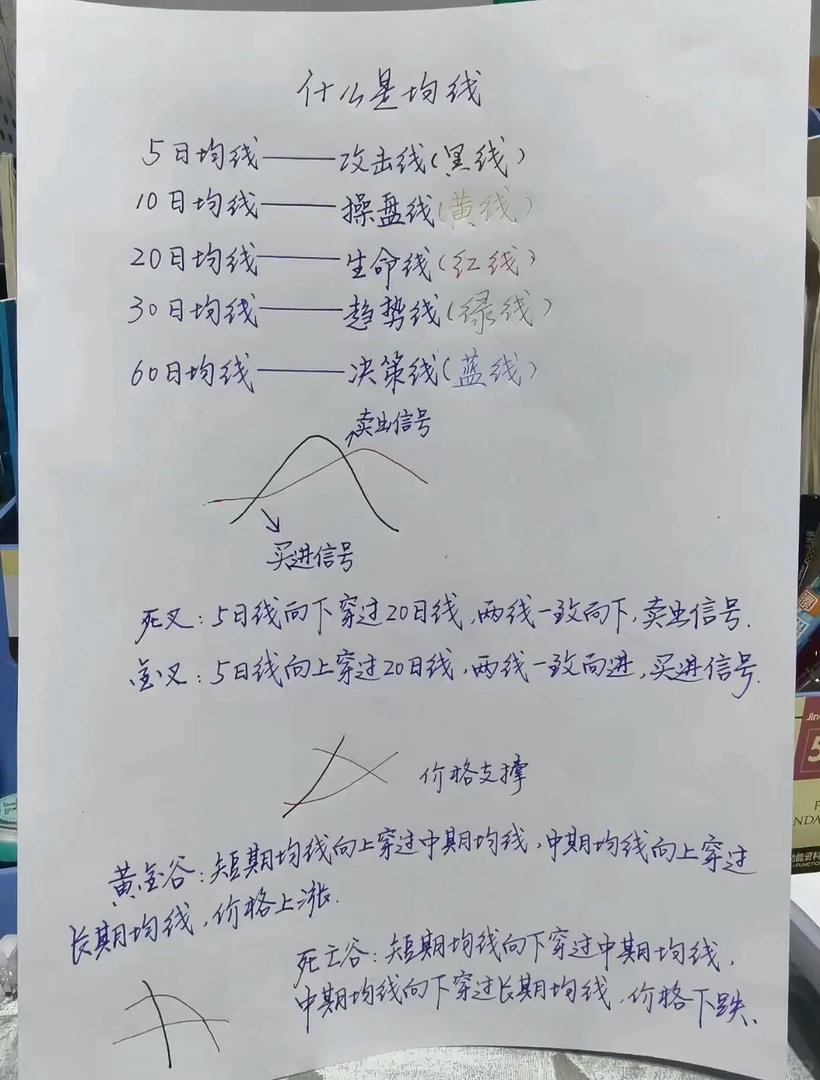 什么是均线
5日均线——攻击线(黑线)
10日均线——操盘线(黄线)
20日均线——生命线(红线)
30日均线——趋势线(绿线)
60日均线——决策线(蓝线)
卖出信号
买进信号
死叉:5日线向下穿过20日线,两线一致向下,卖出信号.
金叉:5日线向上穿过20日线,两线一致向进,买进信号.
价格支撑
黄金谷:短期均线向上穿过中期均线,中期均线向上穿过
长期均线,价格上涨.
死亡谷:短期均线向下穿过中期均线,
中期均线向下穿过长期均线,价格下跌.
Jin
5